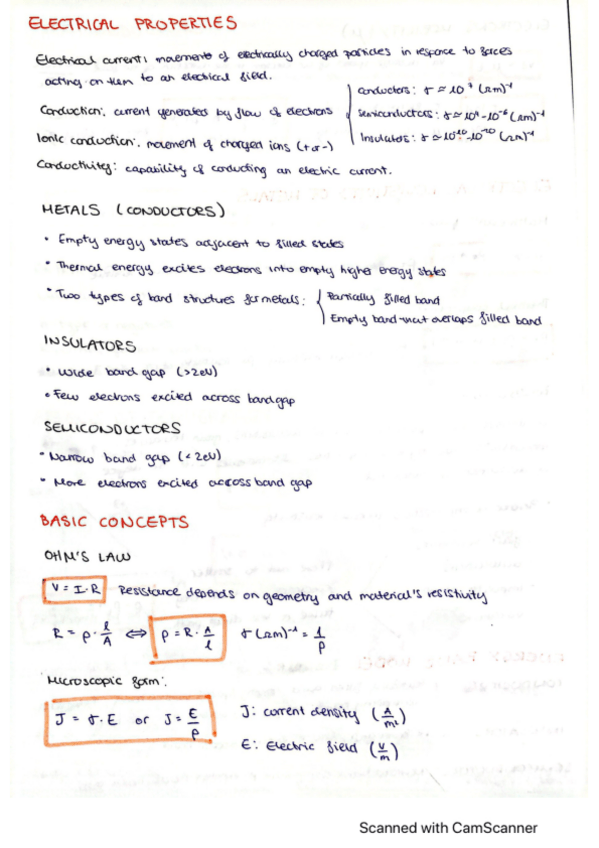 ELECTRICAL PROPERTIES
Electrical current: movement of electrically charged particles in responce to forces
acting on them to an electrical field.
Conduction: current generated by flow of electrons
Ionic conduction: movement of charged ions (+ or -)
Conductivity: capability of conducting an electric current.
Conductors: σ ≈ 10⁷ (Ωm)⁻¹
Semiconductors: σ ≈ 10⁴-10⁻⁶ (Ωm)⁻¹
Insulators: σ ≈ 10⁻¹⁰-10⁻²⁰ (Ωm)⁻¹
METALS (CONDUCTORS)
• Empty energy states adjacent to filled states
• Thermal energy excites electrons into empty higher energy states
• Two types of band structures for metals:
Partially filled band
Empty band that overlaps filled band
INSULATORS
• Wide band gap (>2eV)
• Few electrons excited across band gap
SEMICONDUCTORS
• Narrow band gap (<2eV)
• More electrons excited across band gap
BASIC CONCEPTS
OHM'S LAW
V = I·R Resistance depends on geometry and material's resistivity
R = ρ · l/A ⇔ ρ = R · A/l σ (Ωm)⁻¹ = 1/ρ
Microscopic form:
J = σ·E or J = E/ρ
J: current density (A/m)
E: Electric field (V/m)
Scanned with CamScanner